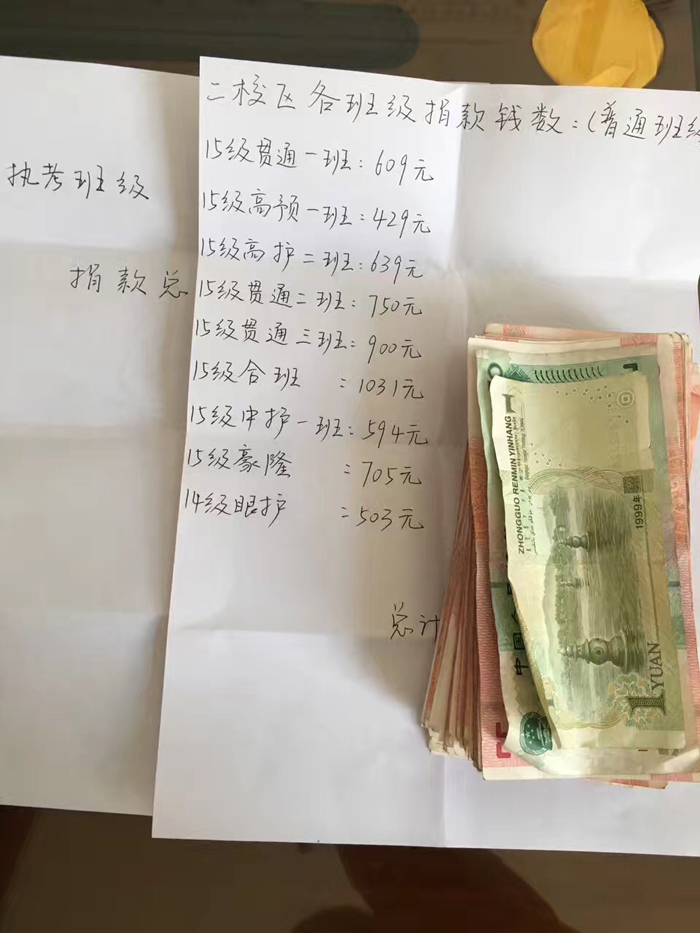 二校区各班级捐款钱数:(普通班级
15级贯通一班:609元
15级高预一班:429元
15级高护二班:639元
15级贯通二班:750元
15级贯通三班:900元
15级合班:1031元
15级中护一班:594元
15级豪隆:705元
14级眼护:503元
总计
执考班级
捐款总
ZHONGGUO RENMIN YINHANG
1999年
1 YUAN
中国